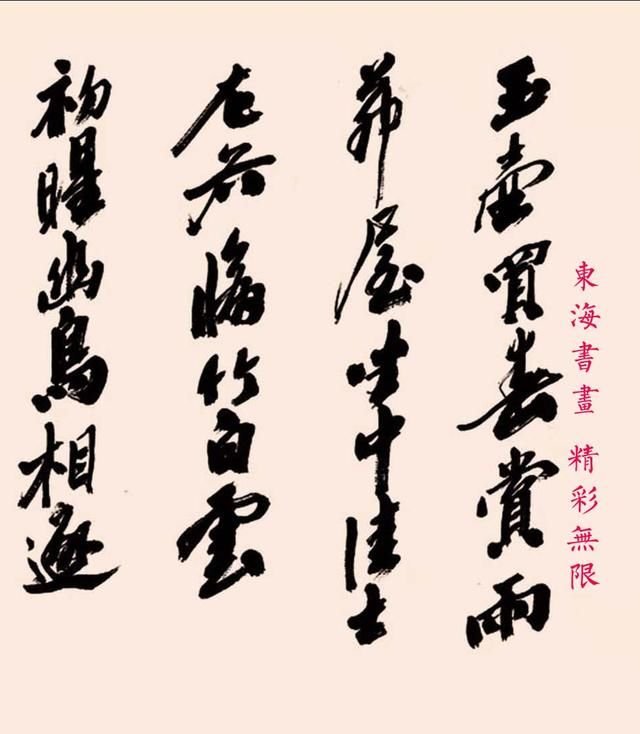 玉壺買春賞雨
茆屋坐中佳士
左右脩竹白雲
初暒幽鳥相逐
東海書畫 精彩無限